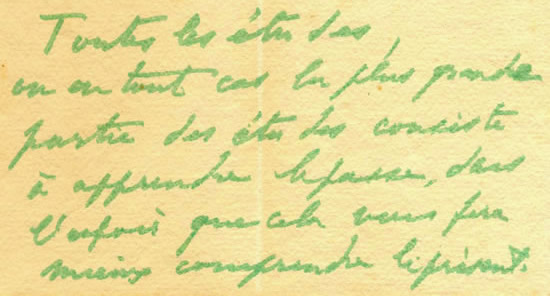 Toutes les études,
ou en tout cas la plus grande
partie des études consiste
à apprendre le passé, dans
l'espoir que cela vous fera
mieux comprendre le présent.